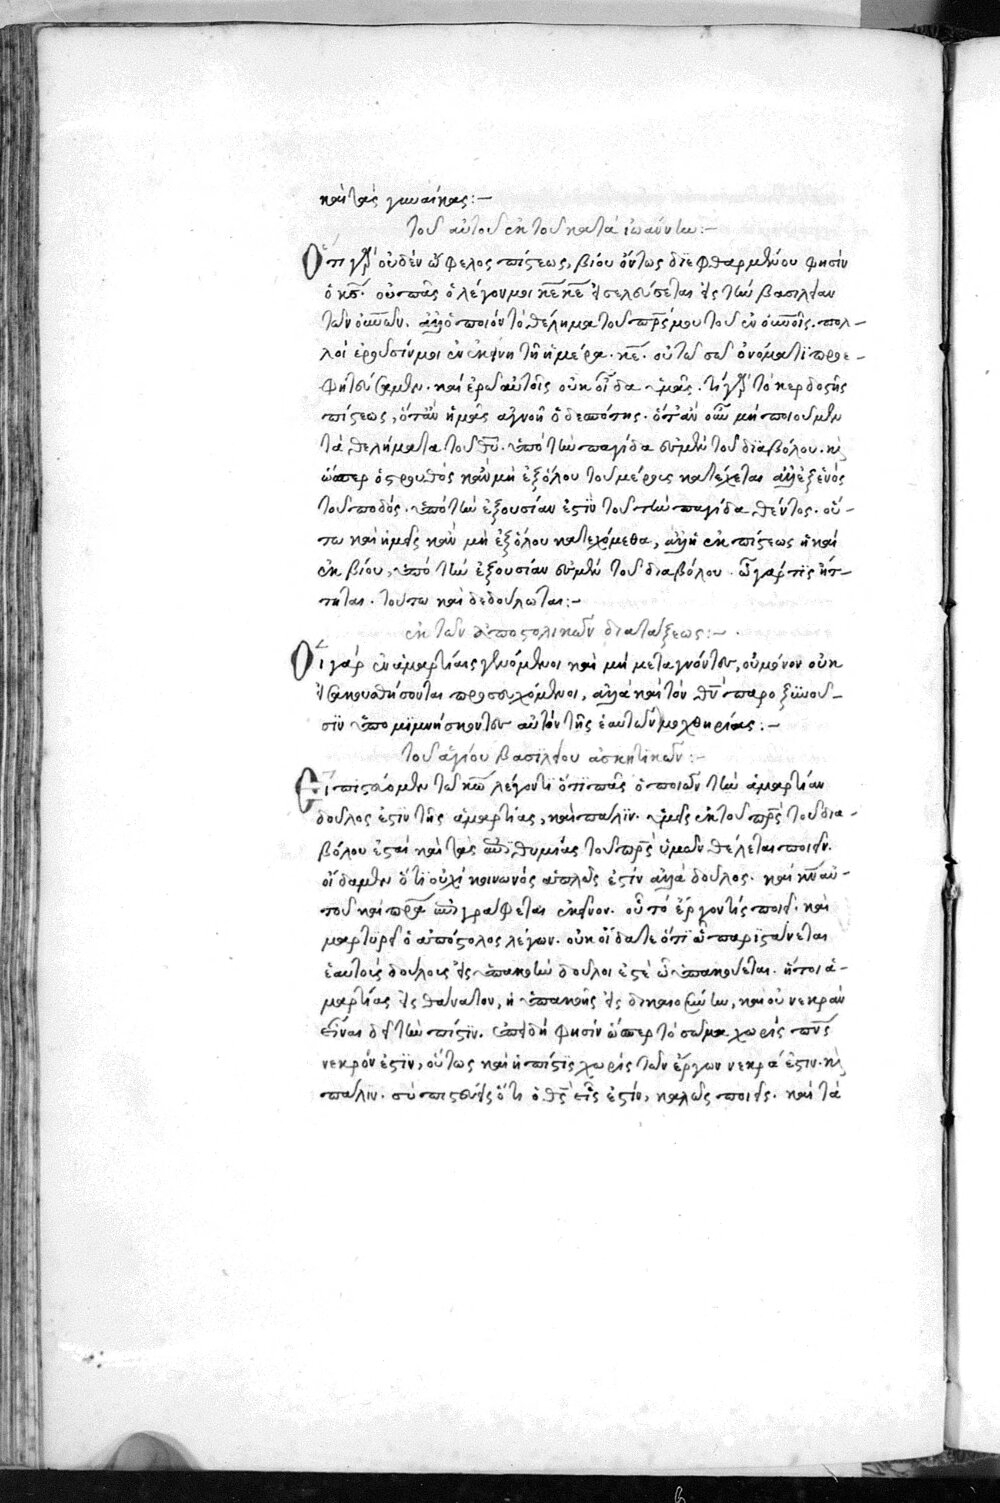 καὶ τὰς γυναίκας:—
τοῦ αὐτοῦ ἐκ τοῦ κατὰ ἰωάννην:—
Ὅτι γὰρ οὐδὲν ὄφελος πίστεως, βίου ὄντως διεφθαρμένου φησὶν
ὁ κς̄. οὐ πᾶς ὁ λέγων μοι κε̄ κε̄ εἰσελεύσεται εἰς τὴν βασιλείαν
τῶν οὐνῶν. ἀλλ' ὁ ποιῶν τὸ θέλημα τοῦ πρς̄ μου τοῦ ἐν οὐνοῖς. πολ-
λοὶ ἐροῦσίν μοι ἐν ἐκείνη τῆ ἡμέρα. κε̄. οὐ τῶ σῶ ὀνόματι προε-
φητεύσαμεν. καὶ ἐρῶ αὐτοῖς οὐκ οἶδα ὑμᾶς. τί γὰρ τὸ κέρδος τῆς
πίστεως, ὅταν ἡμᾶς ἀγνοῆ ὁ δεσπότης. ὅταν οὖν μὴ ποιοῦμεν
τὰ θελήματα τοῦ θῡ. ὑπὸ τὴν παγίδα ἐσμὲν τοῦ διαβόλου. καὶ
ὥσπερ ὁ στρουθὸς κἂν μὴ ἐξόλου τοῦ μέρους κατέχεται ἀλλ' ἐξ ἑνὸς
τοῦ ποδὸς. ὑπὸ τὴν ἐξουσίαν ἐστὶν τοῦ τὴν παγίδα θέντος. οὕ-
τω καὶ ἡμεῖς κἂν μὴ ἐξόλου κατεχόμεθα, ἀλλ' ἢ ἐκ πίστεως ἢ καὶ
ἐκ βίου, ὑπὸ τὴν ἐξουσίαν ἐσμὲν τοῦ διαβόλου. ὧ γάρ τις ἥτ-
τηται. τούτω καὶ δεδούλωται:—
ἐκ τῶν ἀποστολικῶν διατάξεως:—
Οἱ γὰρ ἐν ἁμαρτίαις γενόμενοι καὶ μὴ μεταγνόντες, οὐ μόνον οὐκ
εἰσακουσθήσονται προσευχόμενοι, ἀλλὰ καὶ τὸν θν̄ παροξύνου-
σιν ὑπομιμνήσκοντες αὐτὸν τῆς ἑαυτῶν μοχθηρίας:—
τοῦ ἁγίου βασιλείου ἀσκητικῶν:—
Εἰ πιστεύομεν τῶ κω̄ λέγοντι ὅτι πᾶς ὁ ποιῶν τὴν ἁμαρτίαν
δοῦλος ἐστὶν τῆς ἁμαρτίας, καὶ πάλιν. ὑμεῖς ἐκ τοῦ πρς̄ τοῦ δια-
βόλου ἐστὲ καὶ τὰς ἐπιθυμίας τοῦ πρς̄ ὑμῶν θέλεται ποιεῖν.
οἴδαμεν ὅτι οὐχὶ κοινωνὸς ἁπλῶς ἐστὶν ἀλλὰ δοῦλος. καὶ κν̄ αὐ-
τοῦ καὶ πρᾱ ἐπιγράφεται ἐκεῖνον. οὗ τὸ ἔργον τίς ποιεῖ. καὶ
μαρτυρεῖ ὁ ἀπόστολος λέγων. οὐκ οἴδατε ὅτι ὧ παριστάνεται
ἑαυτοὺς δούλους εἰς ὑπακοὴν δοῦλοι ἐστὲ ὧ ὑπακούεται. ἤτοι ἁ-
μαρτίας εἰς θάνατον, ἢ ὑπακοῆς εἰς δικαιοσύνην, καὶ οὐ νεκρὰν
εἶναι δεῖ τὴν πίστιν. ἐπειδὴ φησὶν ὥσπερ τὸ σῶμα χωρὶς πνς̄
νεκρόν ἐστιν, οὕτως καὶ ἡ πίστις χωρὶς τῶν ἔργων νεκρά ἐστιν. καὶ
πάλιν. σὺ πιστεύεις ὅτι ὁ θς̄ εἷς ἐστίν, καλῶς ποιεῖς. καὶ τὰ